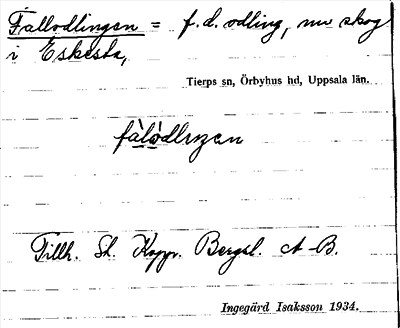 Fallodlingen = f.d. odling, nu skog
i Eskesta,
Tierps sn, Örbyhus hd, Uppsala län.
fàlòdlıŋen
Tillh. St. Koppr. Bergsl. A-B.
Ingegärd Isaksson 1934.